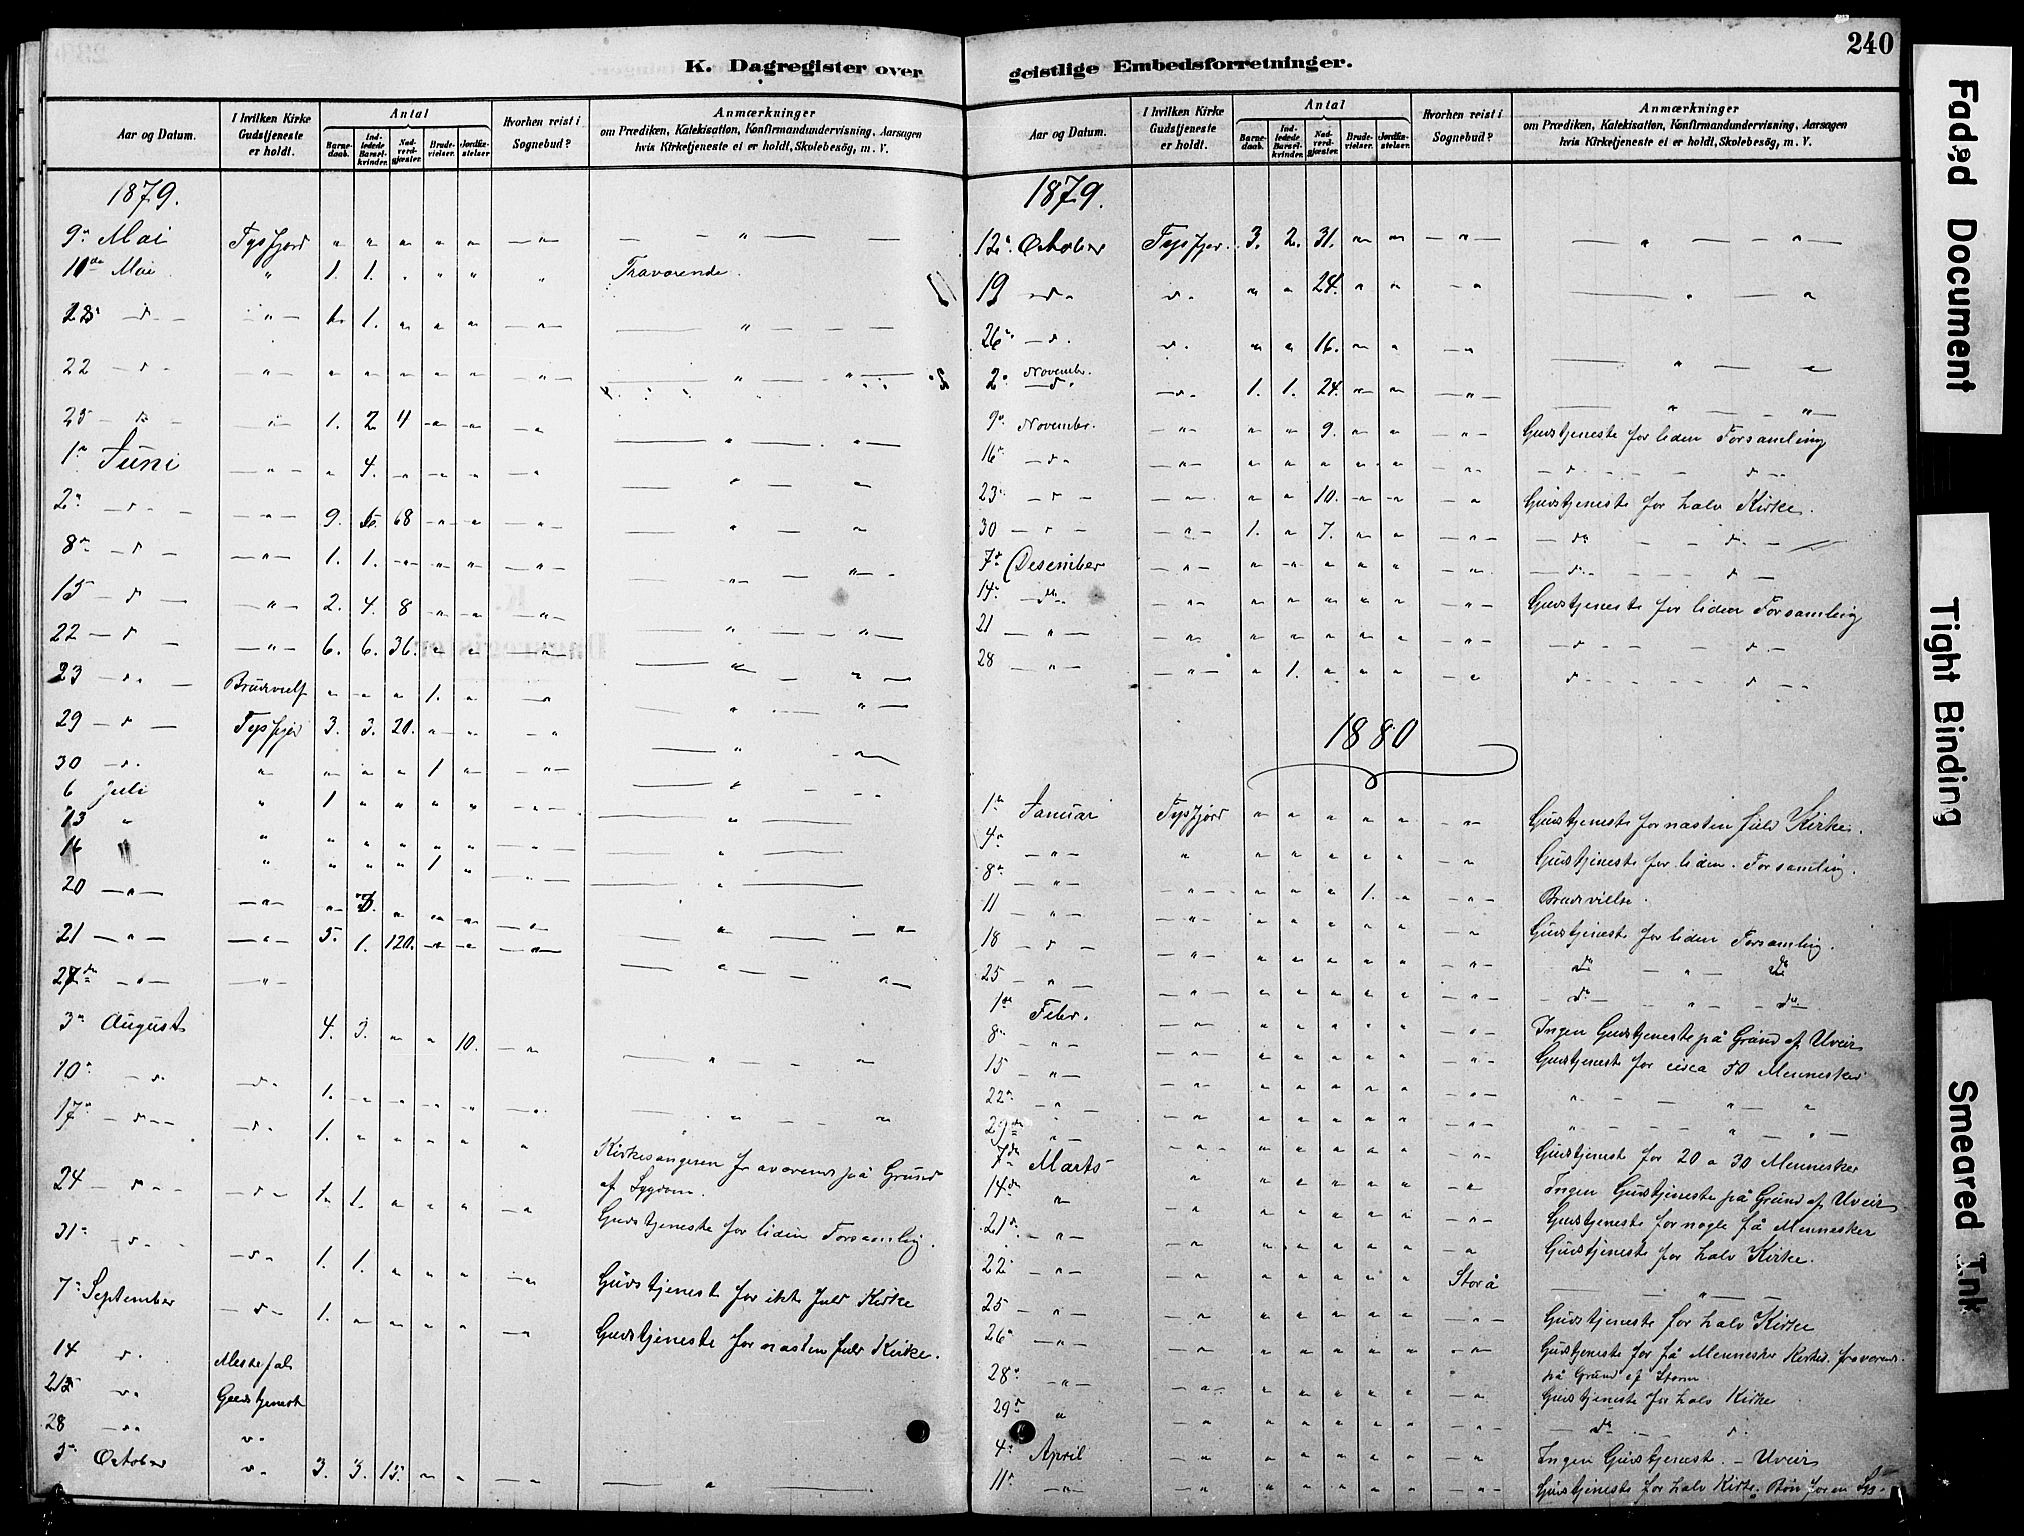 240
K. Dagregister over
geistlige Embedsforretninger.
Aar og Datum.
I hvilken Kirke Gudstjeneste er holdt.
Antal
Barnedaab.
Indledede Barselkvinder.
Nadverdgjæster.
Brudevielser.
Jordfæstelser
Hvorhen reist i Sognebud?
Anmærkninger
om Prædiken, Katekisation, Konfirmandundervisning, Aarsagen
hvis Kirketjeneste ei er holdt, Skolebesög, m. V.
1879.
9 Mai Tysfjord " " " " " — " — — — " —
11de Mai " 1. 1. " " " "
— d — — " — 1. 1. " " " — " — — " — —
22 — d — — " — " " " " " — " — — " —
25 — d — 1. 2 4 — " — " — " —
1 Juni — " — " 4. " " "
2 — d — — " — 9. 15. 68 — " — " —
8 — d — — " — 1. 1. — " —
15 — d — — " — 2. 4. 8 " " — " —
22 — d — — " — 6. 6. 36. " " — " —
23 — d — Brudevielse " " " 1. " — "
29 — d — Tysfjor 3. 3. 20. " " — "
30 — d. " " " " 1 " — " —
6 Juli " 1 " " " " — " —
13 " " " " " " " — " —
16 " " " " " 1 " — " —
20 — " — — " —
21 — " — — " — 5. 1. 120. — " —
27de — " — — " —
3 August 4. 3. " " 10. — "
10 — d. — d. 1. " " " " — "
17 — d — — d. 1. " " " " "
Kirkesangeren fraværende på Grund
af Sygdom.
24 — d — — d — 1. 1. " " " — "
Gudstjeneste for liden Forsamling.
31 — d — — d — 1. 1. " " " — "
Gudstjeneste for ikke fuld Kirke
7 September — d — 1. " " " " — "
Gudstjeneste for næsten fuld Kirke.
14 d.
21 — d. Gudstjeneste
28 — d. d.
5 October d. 3. 3. 15. " " — " — — " —
Aar og Datum.
I hvilken Kirke Gudstjeneste er holdt.
Antal
Barnedaab.
Indledede Barselkvinder.
Nadverdgjæster.
Brudevielser.
Jordfæstelser.
Hvorhen reist i Sognebud?
Anmærkninger
om Prædiken, Katekisation, Konfirmandundervisning, Aarsagen
hvis Kirketjeneste ei er holdt, Skolebesög, m. V.
1879.
12 October Tysfjor. 3. 2. 31. " " — " — — " — " —
19 — d. d. " " 24. " " — " — " "
26 — d. d. " " 16. " " — " — " "
2 Novembr. — d. — d. 1. 1. 24. " " — " — — " — "
9 Novembr. — " — " " 9. " " — " — Gudstjeneste for liden Forsamling
16 — d. — " — " " " " " — " — d. — — d. —
23 — d — — " — " " 10. " " — " Gudstjeneste for halv Kirke.
30 — d — — " — 1. " 7. " " — " — — d. — d. —
7 Desember — " — " " " " " — " — d. — — d. —
14 — d. — " — " " " " " — " — Gudstjeneste for liden Forsamling
21 — " — — " — " " " " " — " — — d. — — d. —
28 — " — — " — " 1. " " " — " d. — — d. —
1880
1 Januar Tysfjord " " " " " — " — Gudstjeneste for næsten fuld Kirke.
4 — " — " " " " " " — " Gudstjeneste for liden Forsamling.
8 — " — — " — " " " 1. " — " — Brudevielse.
11 — " — — " — " " " " " — " Gudstjeneste for liden Forsamling.
18 — d — — " — " " " " " — " — do — " — do
25 — " — — " — " " " " " — " — — do — " — do.
1 Febr. — " — " " " " " — " — Ingen Gudstjeneste på Grund af Uveir
8 — " — — " — " " " " " — " — Gudstjeneste for circa 50 Mennesker
15 — " — — " — " " " " " — " — " — — " — "
22 — " — — " — " " " " " — " — " — — " — " —
29de " — — " — " " " " " — " — Gudstjeneste for 20 a 30 Mennesker
7de Marts " " " " " " — " Ingen Gudstjeneste på Grund af Uveir
14de " — " — " " " " " — " Gudstjeneste for nogle få Mennesker
21 — " — — " — " " " " " — " Gudstjeneste for halv Kirke.
22 — " — — " — " " " " " Storå — " —
25 — " — — " — " " " " " — " — Gudstjeneste for halv Kirke
26 — " — — " — " " " " " — " Gudstjeneste for få Mennesker Kirkes. fraværende
på Grund af Storm.
28 — " — — " — " " " " " — " Gudstjeneste for halv Kirke
29 " — " — " " " " " — " — do — d.
4 April — " — " " " " " — " Ingen Gudstjeneste. — Uveir
11 — " — — " — " " " " " — " — Gudstjeneste for halv Kirke. Bøn for en
Faded Document
Tight Binding
Smeared Ink